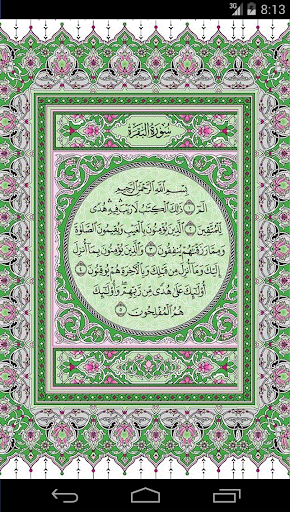 3G 8:13
سُورَةُ البَقَرَةِ
بِسْمِ اللَّهِ الرَّحْمَٰنِ الرَّحِيمِ
الٓمٓ ١ ذَٰلِكَ الْكِتَٰبُ لَا رَيْبَ فِيهِ هُدًى
لِّلْمُتَّقِينَ ٢ الَّذِينَ يُؤْمِنُونَ بِالْغَيْبِ وَيُقِيمُونَ الصَّلَوٰةَ
وَمِمَّا رَزَقْنَٰهُمْ يُنفِقُونَ ٣ وَالَّذِينَ يُؤْمِنُونَ بِمَآ أُنزِلَ
إِلَيْكَ وَمَآ أُنزِلَ مِن قَبْلِكَ وَبِالْآخِرَةِ هُمْ يُوقِنُونَ ٤
أُو۟لَٰٓئِكَ عَلَىٰ هُدًى مِّن رَّبِّهِمْ وَأُو۟لَٰٓئِكَ
هُمُ الْمُفْلِحُونَ ٥